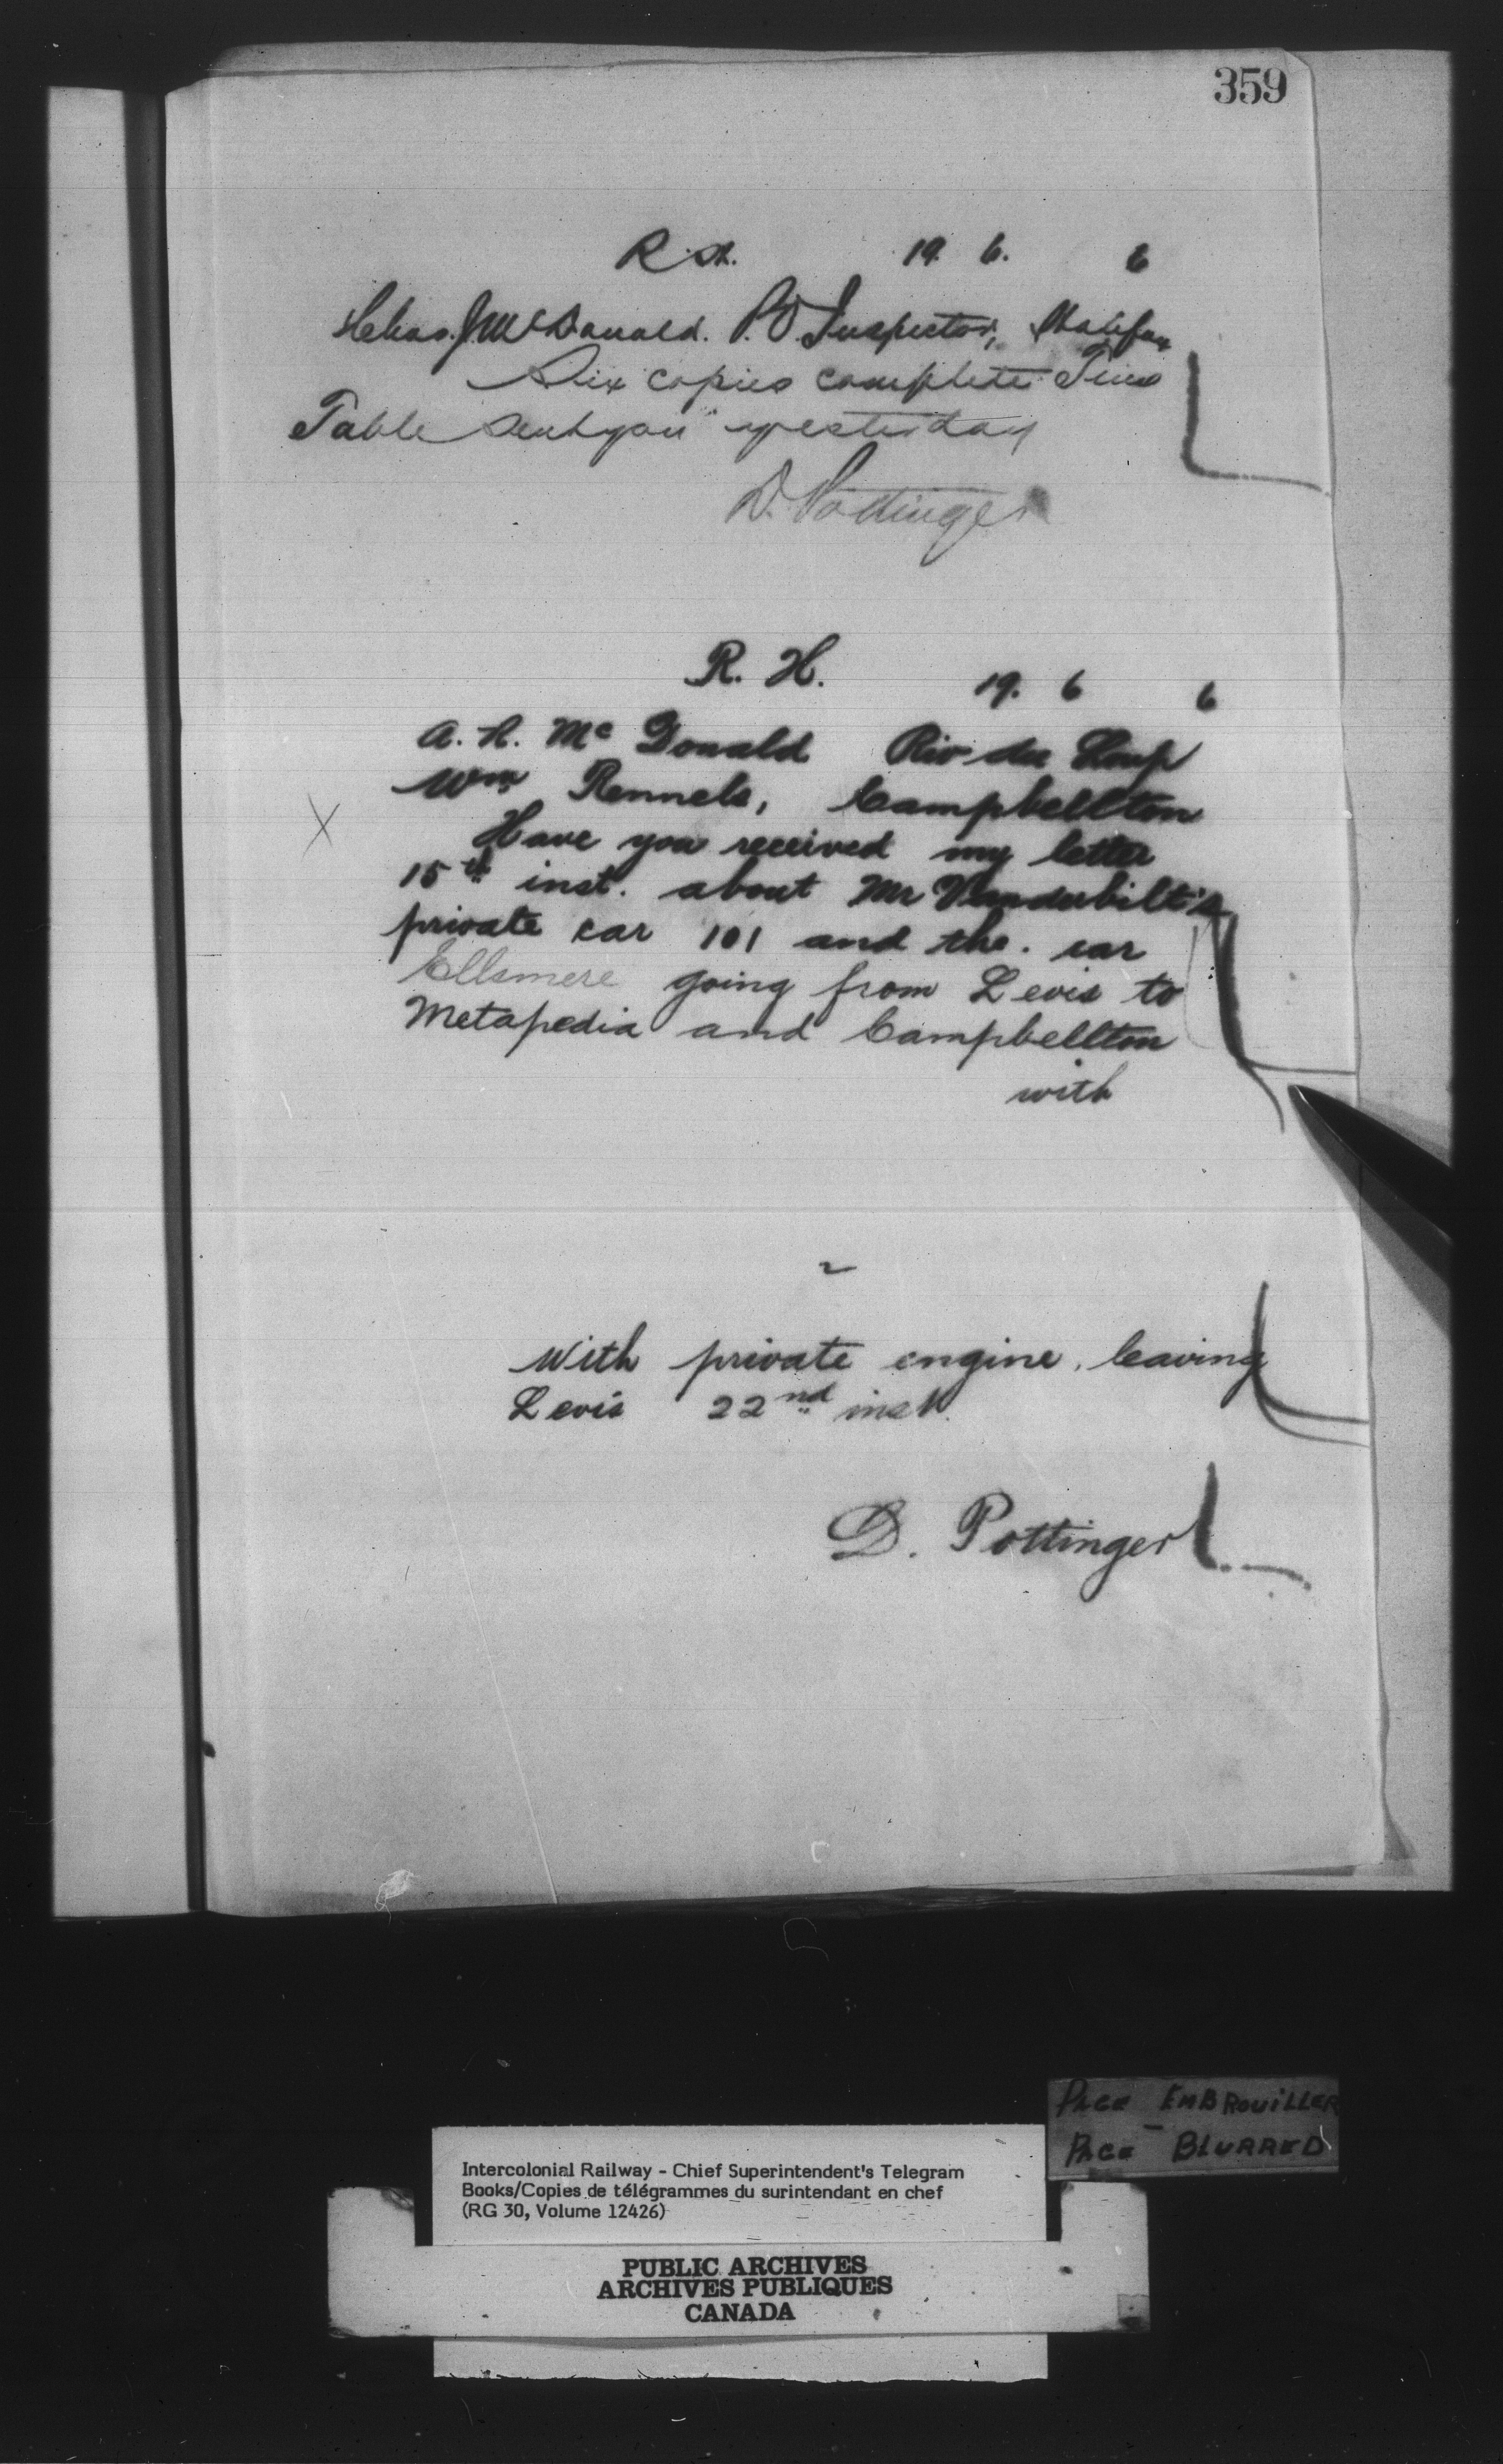 359
R. H. 19. 6. 6
Chas. J. McDonald. P.O. Inspector, Halifax
Six copies complete Time
Table sent you yesterday
D. Pottinger
R. H. 19. 6 6
A. R. Mc Donald Riv du Loup
Wm Rennels, Campbellton
Have you received my letter
15th inst. about Mr Vanderbilt's
private car 101 and the car
Ellsmere going from Levis to
Metapedia and Campbellton
with
2
With private engine, leaving
Levis 22nd inst.
D. Pottinger
PAGE EMBROUILLER
PAGE BLURRED
Intercolonial Railway - Chief Superintendent's Telegram
Books/Copies de télégrammes du surintendant en chef
(RG 30, Volume 12426)
PUBLIC ARCHIVES
ARCHIVES PUBLIQUES
CANADA